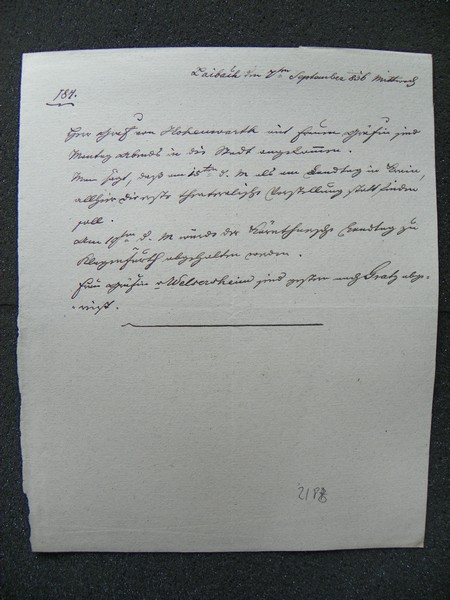 Laibach den 7ten September 836 Mittwoch
181.
Herr Graf von Hohenwarth mit Frauen Gräfin sind
Montag Abends in die Stadt angekommen.
Man sagt, daß am d. M als am Landtag in Krain,
allhier die erste theatralische Vorstellung statt finden
soll.
Am d. M würde der Kärnthnerische Landtag zu
Klagenfurth abgehalten werden.
Frau Gräfin Welsersheim sind gestern nach Gratz abge-
reist.